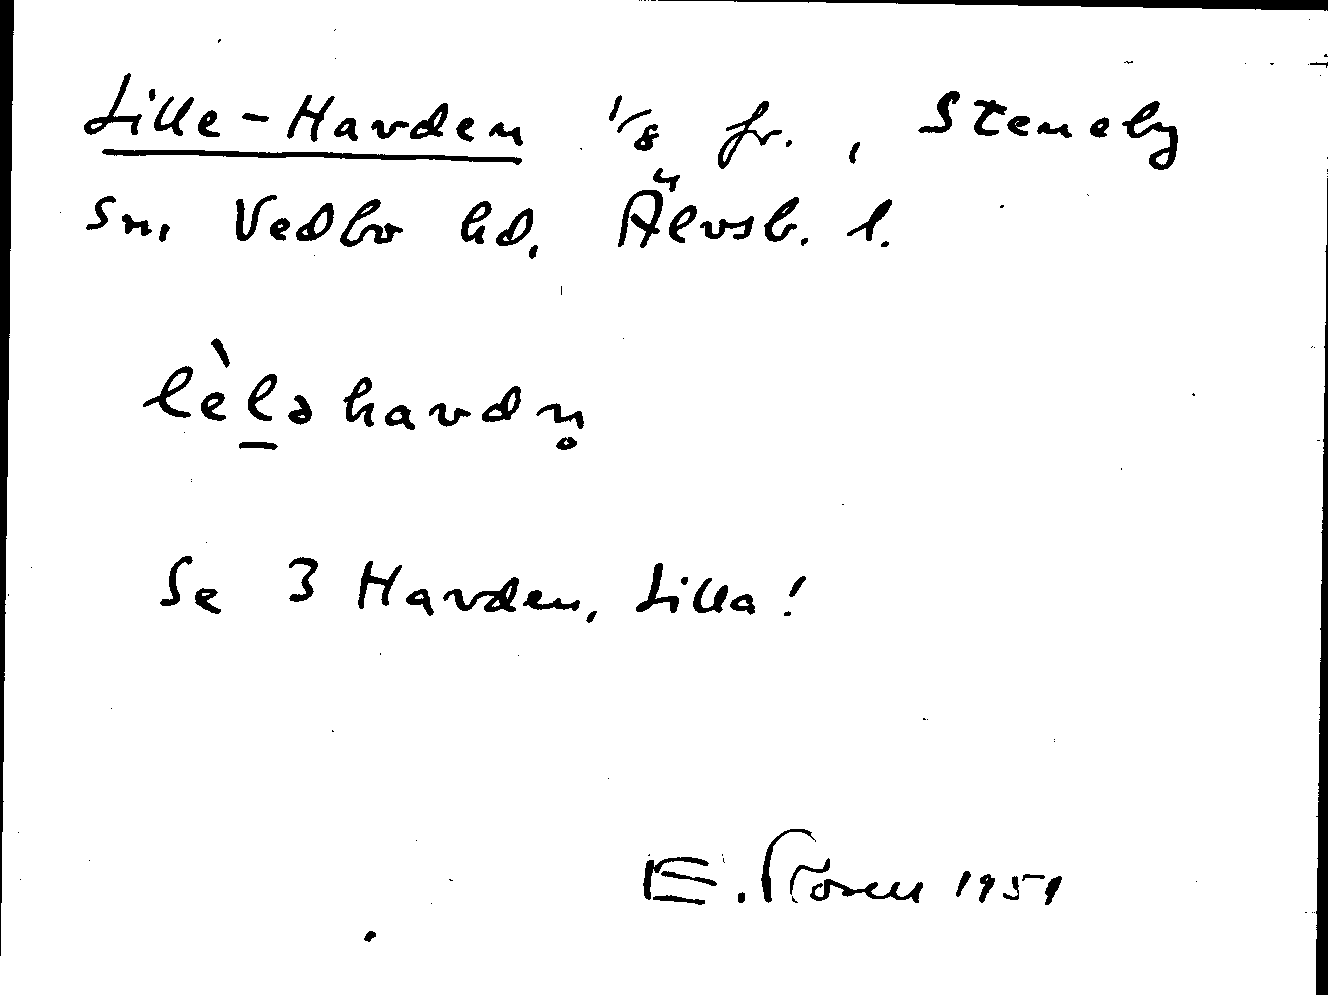 Lille-Havden 1/8 fr., Steneby
sn, Vedbo hd. Älvsb. l.
lèl̲ə havdn̥
Se 3 Havden, Lilla!
E. 1959